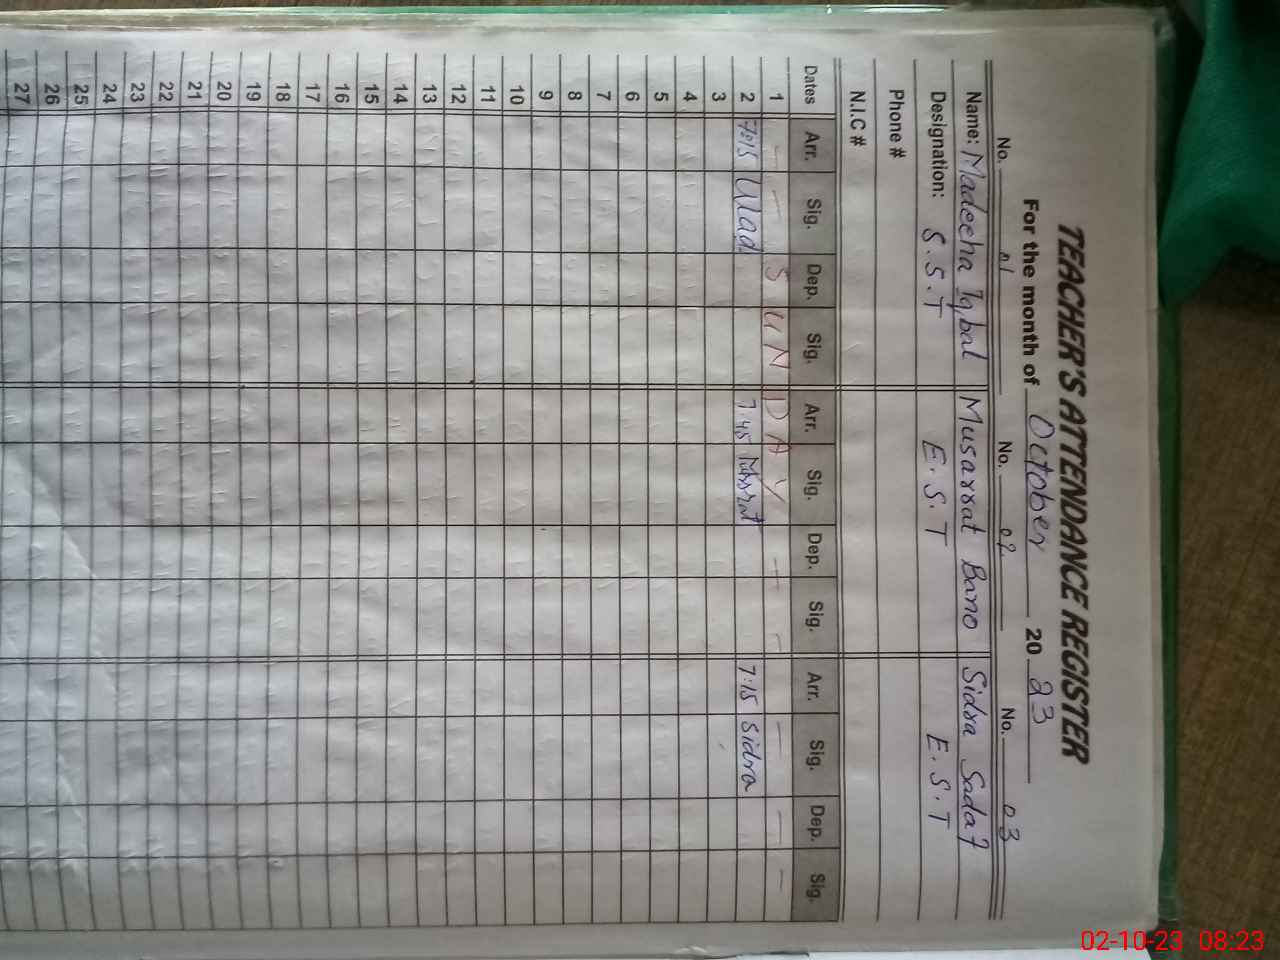 TEACHER'S ATTENDANCE REGISTER
For the month of October 2023
No. 01 No. 02 No. 03
Name: Madeeha Iqbal Musarrat Bano Sidra Sadaf
Designation: S.S.T E.S.T E.S.T
Phone #
N.I.C #
Dates Arr. Sig. Dep. Sig. Arr. Sig. Dep. Sig. Arr. Sig. Dep. Sig.
1 — — S U N D A Y — — — — —
2 7:15 7:45 7:15 Sidra
3
4
5
6
7
8
9
10
11
12
13
14
15
16
17
18
19
20
21
22
23
24
25
26
27
02-10-23 08:23